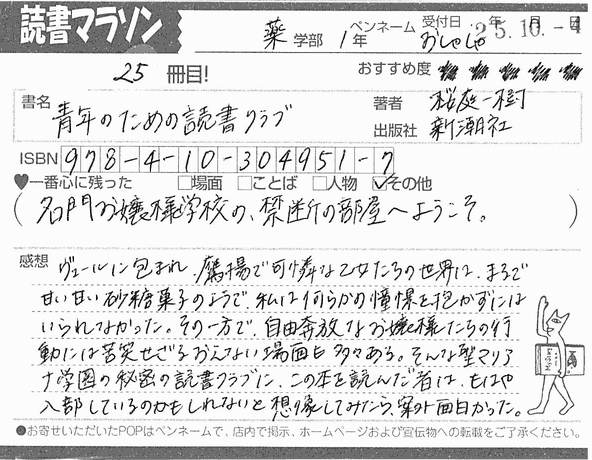 読書マラソン
薬 学部 1年
ペンネーム おしゃしゃ
受付日 25.10.-4 年 月 日
25 冊目!
おすすめ度
書名 青年のための読書クラブ
著者 桜庭一樹
出版社 新潮社
ISBN 978-4-10-304951-7
♥一番心に残った □場面 □ことば □人物 ☑その他
(名門お嬢様学校の、禁断の部屋へようこそ。)
感想 ヴェールに包まれ、鷹揚で可憐な乙女たちの世界は、まるで
甘い甘い砂糖菓子のようで、私は何らかの憧憬を抱かずには
いられなかった。その一方で、自由奔放なお嬢様たちの行
動には苦笑せざるおえない場面も多々ある。そんな聖マリア
ナ学園の秘密の読書クラブに、この本を読んだ者は、もはや
入部しているのかもしれないと想像してみたら、案外面白かった。
●お寄せいただいたPOPはペンネームで、店内で掲示、ホームページおよび宣伝物への転載をご了承ください。